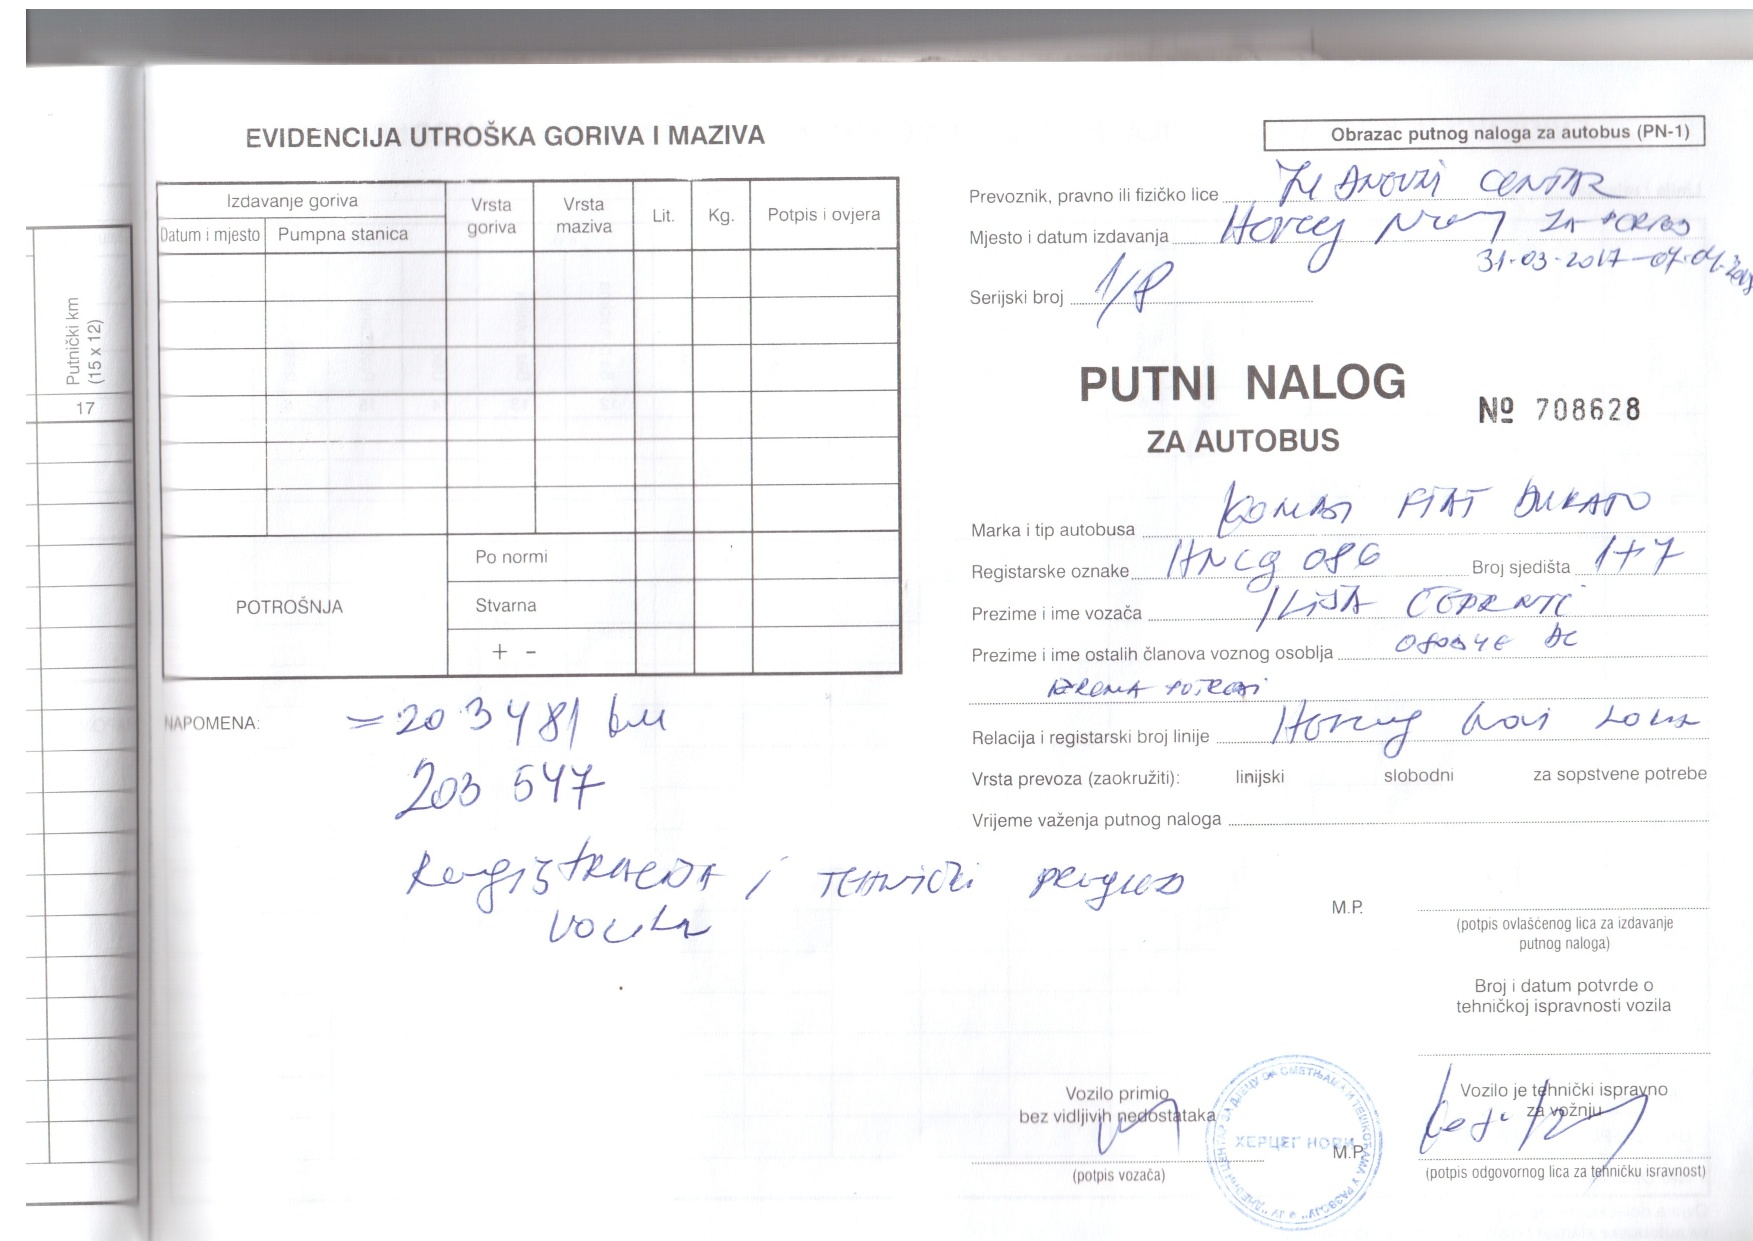 Putnički km
(15 x 12)
17
EVIDENCIJA UTROŠKA GORIVA I MAZIVA
Izdavanje goriva
Datum i mjesto
Pumpna stanica
Vrsta goriva
Vrsta maziva
Lit.
Kg.
Potpis i ovjera
POTROŠNJA
Po normi
Stvarna
+ -
NAPOMENA:
= 203481 km
203 547
i
Obrazac putnog naloga za autobus (PN-1)
Prevoznik, pravno ili fizičko lice CENTAR
Mjesto i datum izdavanja
31-03-2017-07.04.
Serijski broj 1/8
PUTNI NALOG
№ 708628
ZA AUTOBUS
Marka i tip autobusa KOMBI FIAT DUKATO
Registarske oznake HNCG 086 Broj sjedišta 1+7
Prezime i ime vozača ILIJA
Prezime i ime ostalih članova voznog osoblja OSOBLJE DC
PREMA POTREBI
Relacija i registarski broj linije
Vrsta prevoza (zaokružiti): linijski slobodni za sopstvene potrebe
Vrijeme važenja putnog naloga
M.P.
(potpis ovlašćenog lica za izdavanje
putnog naloga)
Broj i datum potvrde o
tehničkoj ispravnosti vozila
Vozilo primio
bez vidljivih nedostataka
(potpis vozača)
ХЕРЦЕГ НОВИ
M.P.
Vozilo je tehnički ispravno
za vožnju
(potpis odgovornog lica za tehničku isravnost)